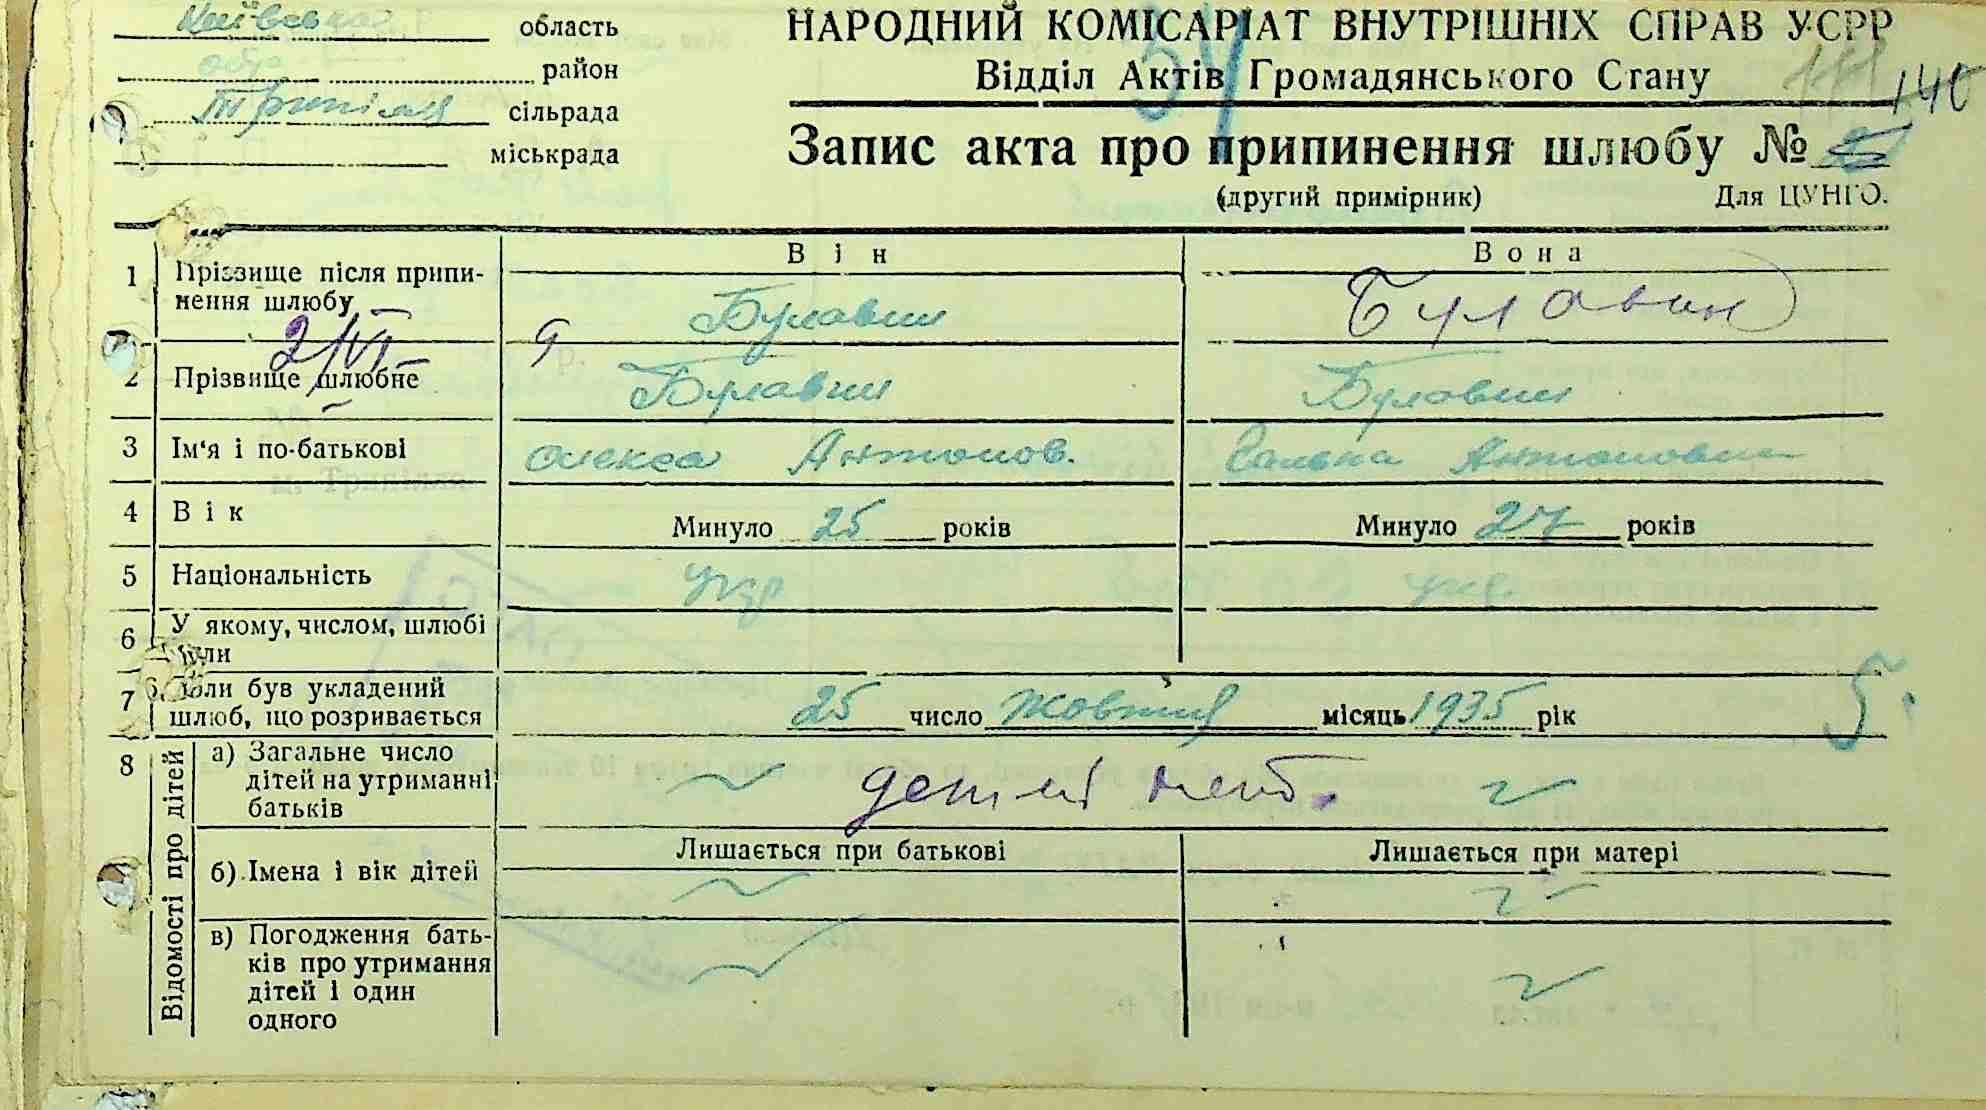 Київська область
район
Трипілля сільрада
міськрада
НАРОДНИЙ КОМІСАРІАТ ВНУТРІШНІХ СПРАВ УСРР
Відділ Актів Громадянського Стану
140
Запис акта про припинення шлюбу №
(другий примірник) Для ЦУНГО.
Він Вона
1 Прізвище після припи-
нення шлюбу Булавин Булавин
2/VI
2 Прізвище шлюбне Булавин Булавин
3 Ім'я і по-батькові Олекса Антонов. Галина Антоновна
4 Вік Минуло 25 років Минуло 27 років
5 Національність укр укр.
6 У якому, числом, шлюбі
були
7 Коли був укладений
шлюб, що розривається 25 число жовтня місяць 1935 рік
5.
8 Відомості про дітей
а) Загальне число
дітей на утриманні
батьків детей нет.
Лишається при батькові Лишається при матері
б) Імена і вік дітей
в) Погодження бать-
ків про утримання
дітей і один
одного